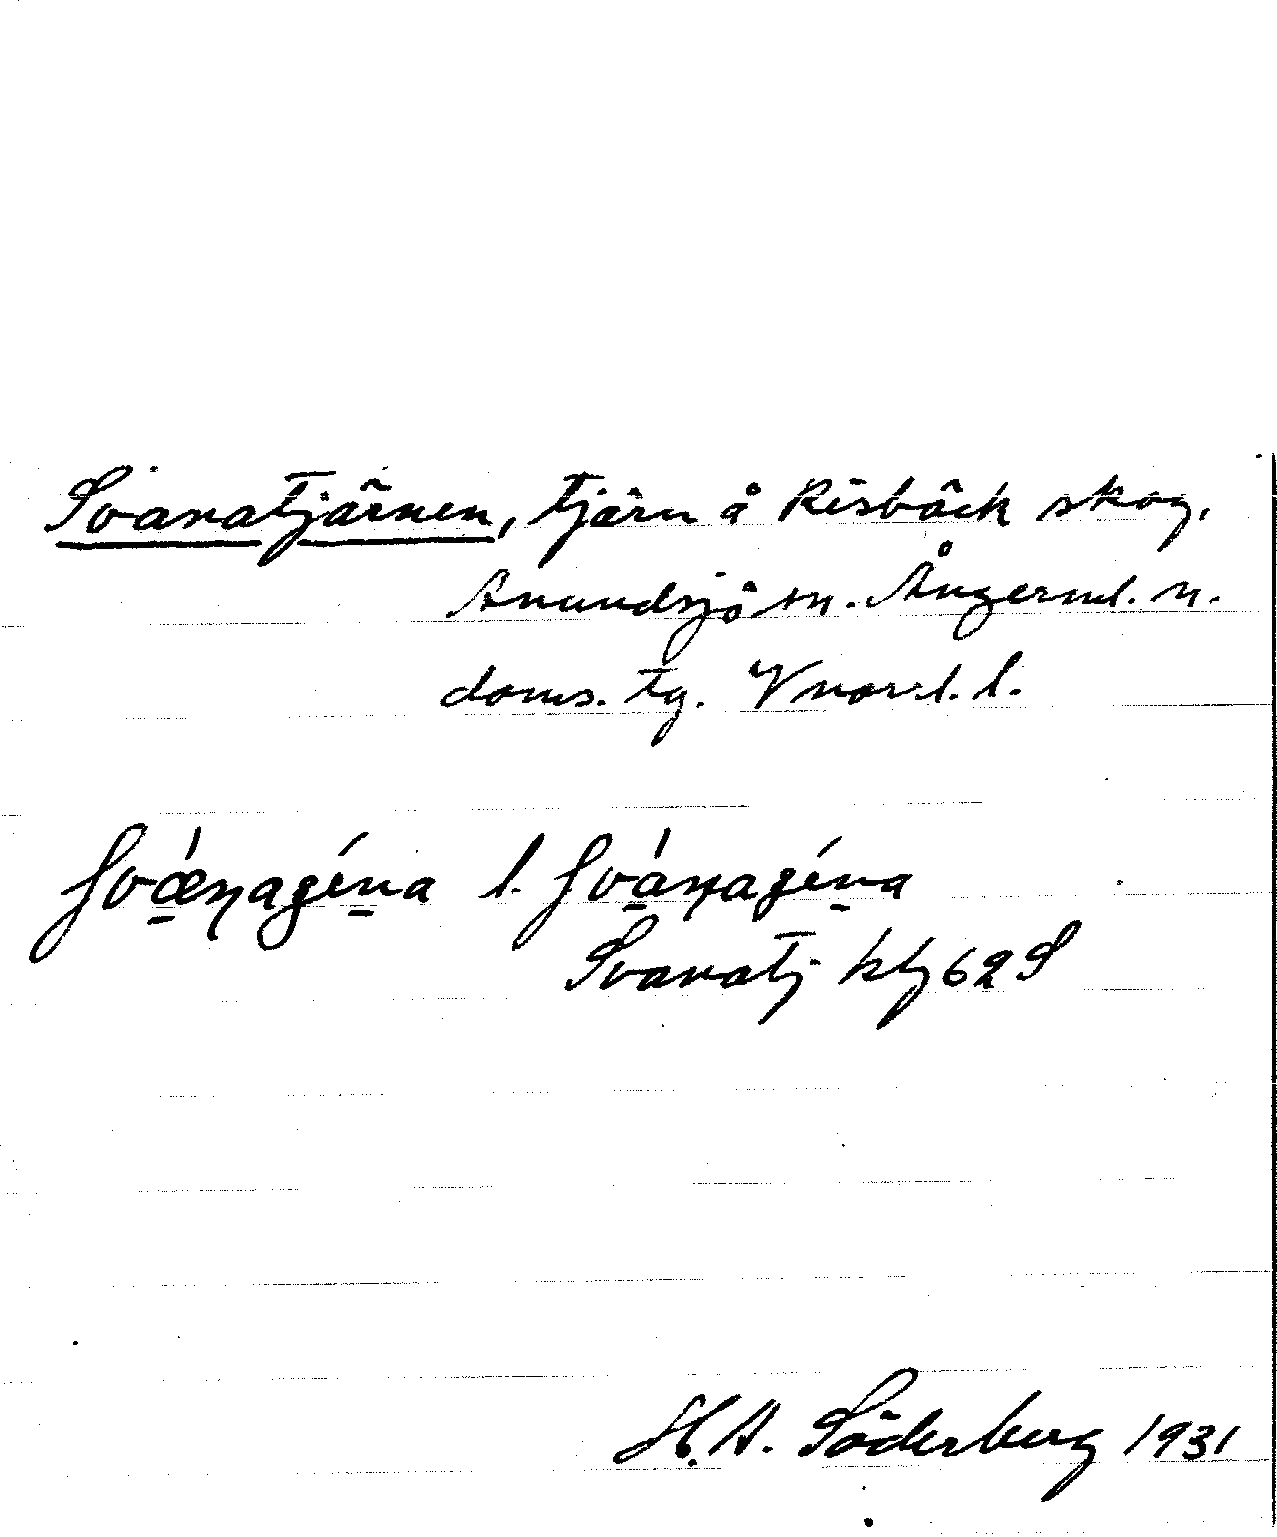 Svanatjärnen, tjärn å Risbäck skog,
Anundsjö sn. Ångerml. n.
doms. tg. Vnorrl. l.
svǽ̲nagé̲na l. svá̲nagé̲na
Svanatj ktj 62 S
H. A. Söderberg 1931